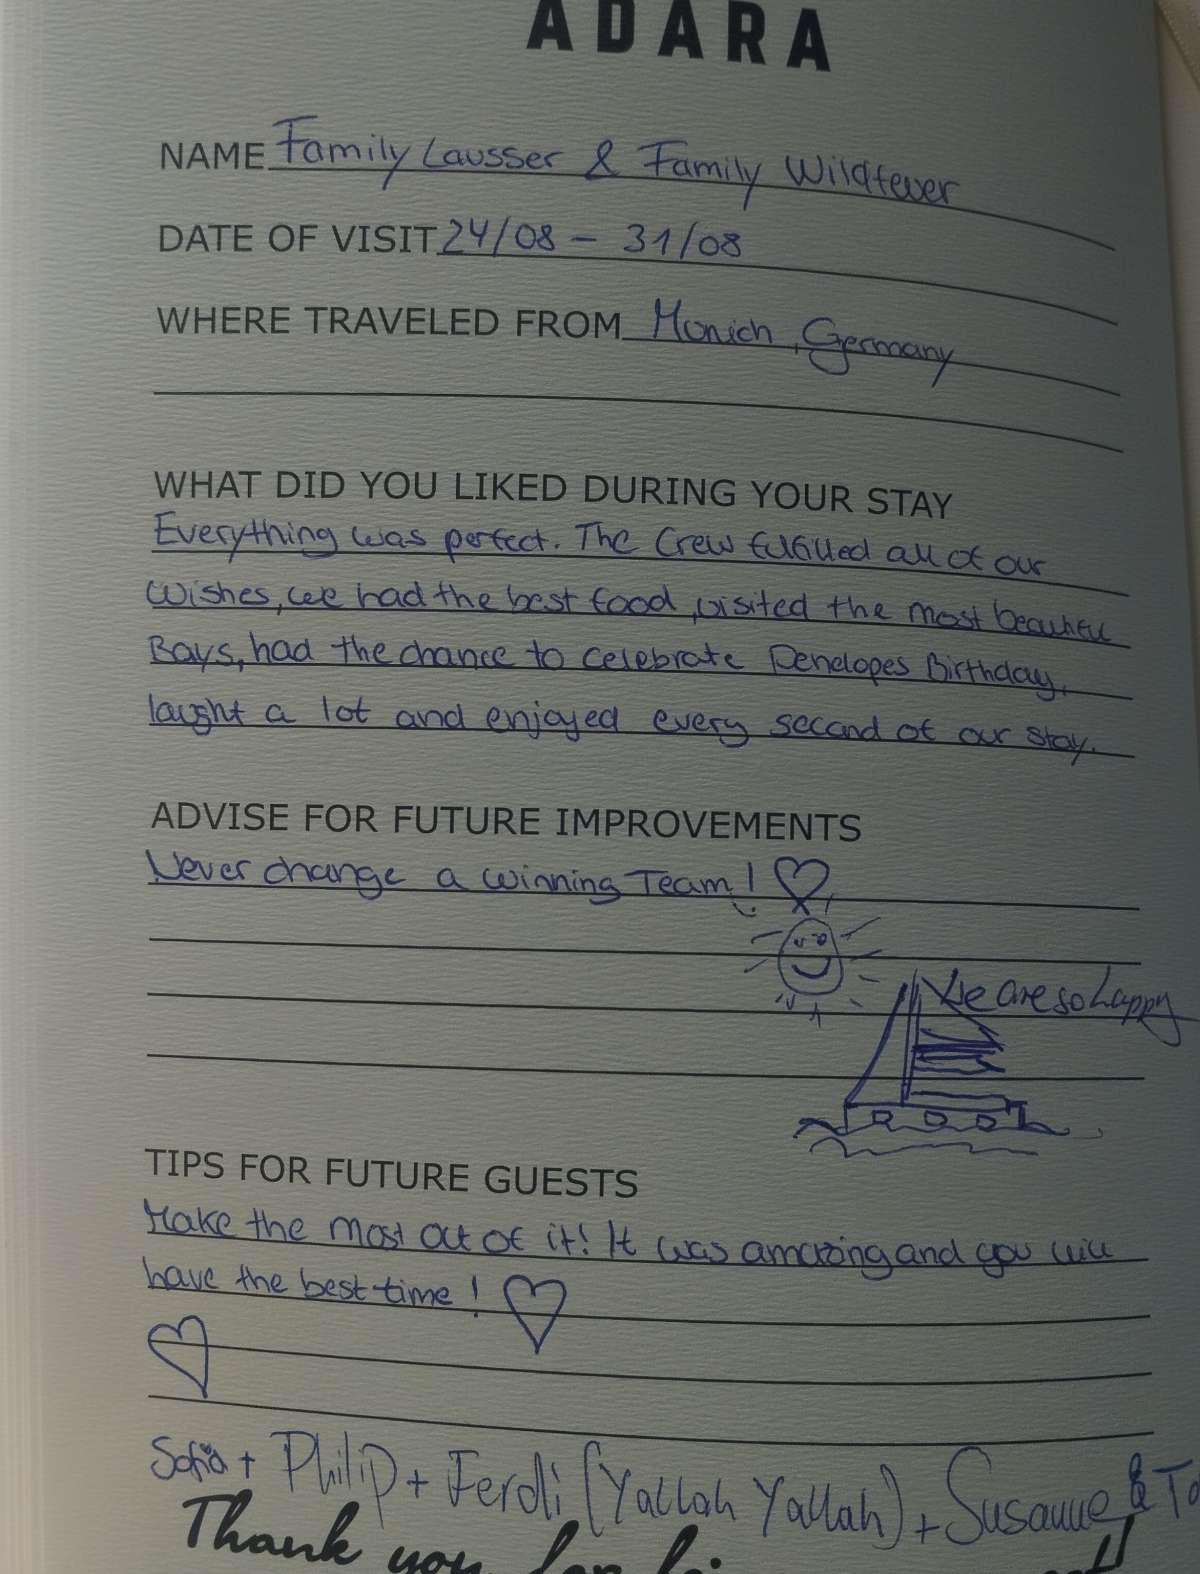 ADARA
NAME Family Lausser & Family
DATE OF VISIT 24/08 - 31/08
WHERE TRAVELED FROM Munich, Germany
WHAT DID YOU LIKED DURING YOUR STAY
Everything was perfect. The Crew fulfilled all of our
wishes, we had the best food, visited the most beautiful
Bays, had the chance to celebrate Penelopes Birthday,
laught a lot and enjoyed every second of our stay.
ADVISE FOR FUTURE IMPROVEMENTS
Never change a winning Team!
We are so happy
TIPS FOR FUTURE GUESTS
Make the most out of it! It was amazing and you will
have the best time!
Sofia + Philip + Ferdi (Yallah Yallah) + Susanne &
Thank you for